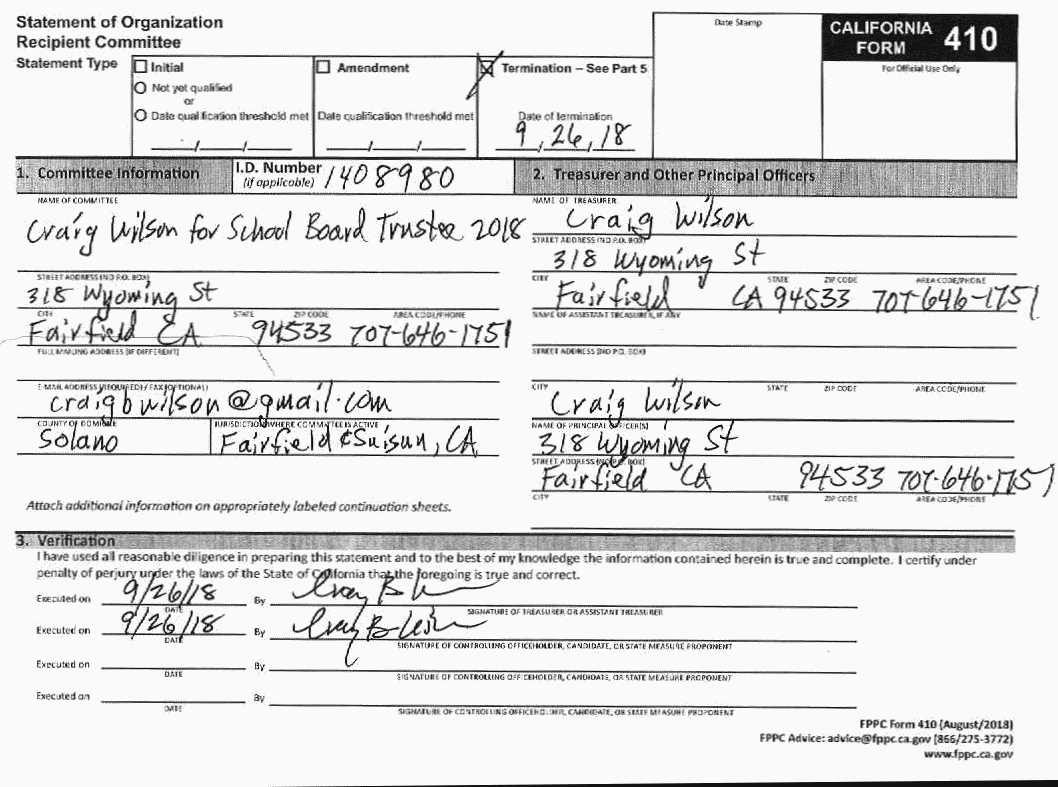 Statement of Organization
Recipient Committee
Statement Type
Initial
Not yet qualified
or
Date qualification threshold met
Amendment
Date qualification threshold met
Termination – See Part 5
Date of termination
9, 26, 18
Date Stamp
CALIFORNIA FORM 410
For Official Use Only
1. Committee Information
I.D. Number (if applicable) 1408980
NAME OF COMMITTEE
Craig Wilson for School Board Trustee 2018
STREET ADDRESS (NO P.O. BOX)
318 Wyoming St
CITY STATE ZIP CODE AREA CODE/PHONE
Fairfield CA 94533 707-646-1751
FULL MAILING ADDRESS (IF DIFFERENT)
E-MAIL ADDRESS (REQUIRED) / FAX (OPTIONAL)
craigbwilson@gmail.com
COUNTY OF DOMICILE JURISDICTION WHERE COMMITTEE IS ACTIVE
Solano Fairfield & Suisun, CA
Attach additional information on appropriately labeled continuation sheets.
2. Treasurer and Other Principal Officers
NAME OF TREASURER
Craig Wilson
STREET ADDRESS (NO P.O. BOX)
318 Wyoming St
CITY STATE ZIP CODE AREA CODE/PHONE
Fairfield CA 94533 707-646-1751
NAME OF ASSISTANT TREASURER, IF ANY
STREET ADDRESS (NO P.O. BOX)
CITY STATE ZIP CODE AREA CODE/PHONE
Craig Wilson
NAME OF PRINCIPAL OFFICER(S)
318 Wyoming St
STREET ADDRESS (NO P.O. BOX)
Fairfield CA 94533 707-646-1751
CITY STATE ZIP CODE AREA CODE/PHONE
3. Verification
I have used all reasonable diligence in preparing this statement and to the best of my knowledge the information contained herein is true and complete. I certify under
penalty of perjury under the laws of the State of California that the foregoing is true and correct.
Executed on 9/26/18 By
DATE SIGNATURE OF TREASURER OR ASSISTANT TREASURER
Executed on 9/26/18 By
DATE SIGNATURE OF CONTROLLING OFFICEHOLDER, CANDIDATE, OR STATE MEASURE PROPONENT
Executed on By
DATE SIGNATURE OF CONTROLLING OFFICEHOLDER, CANDIDATE, OR STATE MEASURE PROPONENT
Executed on By
DATE SIGNATURE OF CONTROLLING OFFICEHOLDER, CANDIDATE, OR STATE MEASURE PROPONENT
FPPC Form 410 (August/2018)
FPPC Advice: advice@fppc.ca.gov (866/275-3772)
www.fppc.ca.gov